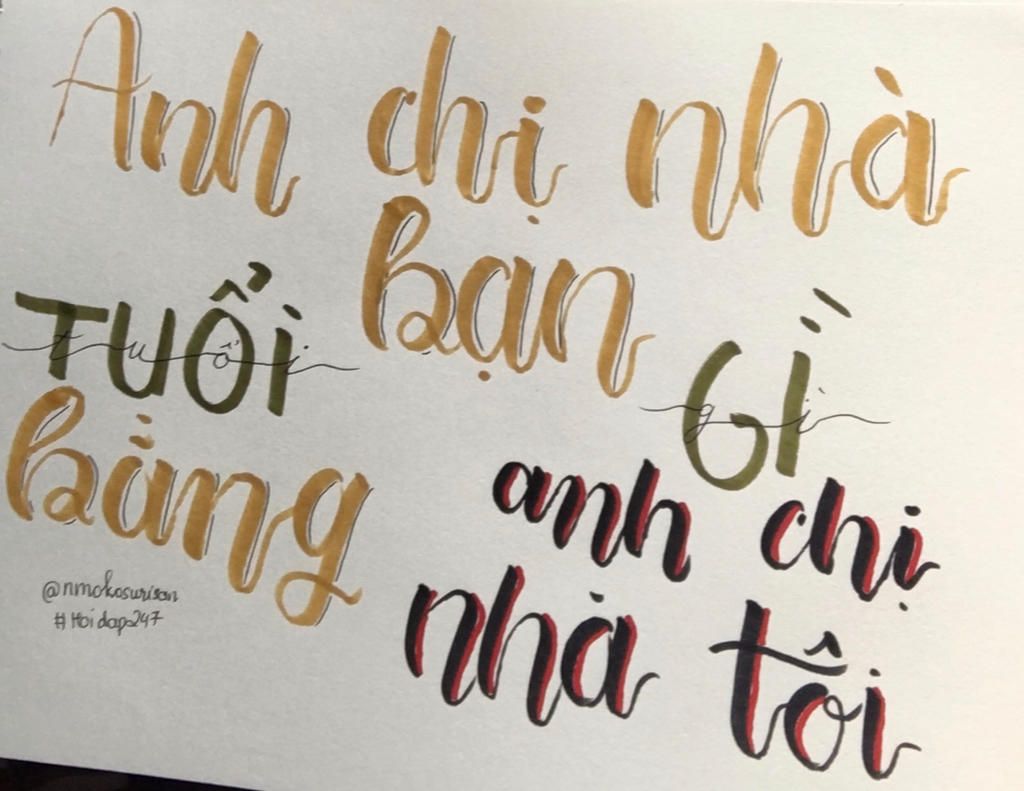 Anh chị nhà
bạn
TUỔI GÌ
tuổi gì
bằng
anh chị
nhà tôi
@nmokosurisan
#Hoidap247